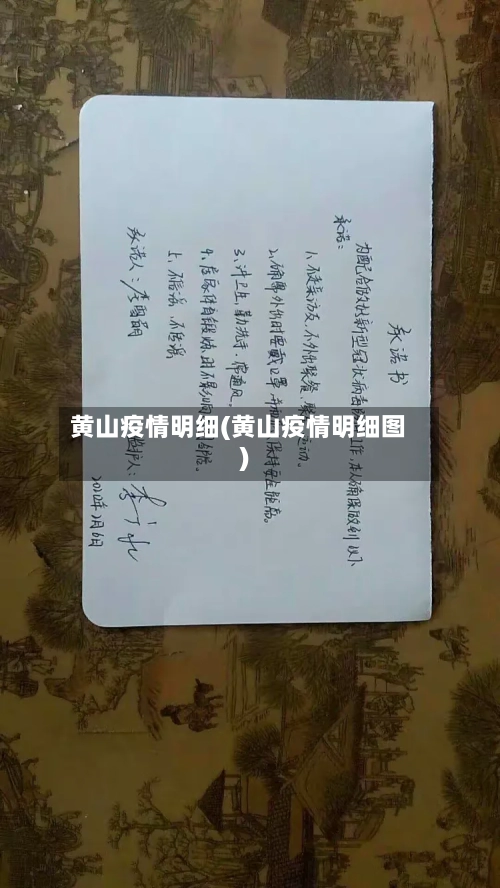 黄山疫情明细(黄山疫情明细图
)
承诺书
为配合做好新型冠状病毒工作,本人确保做到以下
承诺:
1、不走亲访友,不外出聚餐、聚运动。
2、确需外出时要戴口罩,并保持安全距离。
3、讲卫生、勤洗手、常通风。
4、居家体育锻炼
5、不信谣、不传谣
承诺人:李
护人:李
2020年2月6日